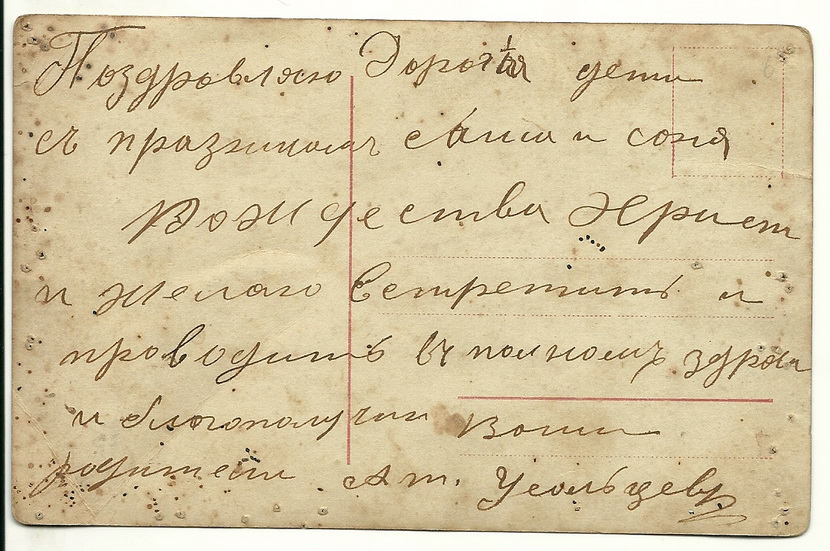 Поздровляю Дорогія дети
съ празникомъ саша и соня
Рождества Христ
и желаю встретить и
проводить въ полномъ здрави
и благополучии Ваши
родители Ат. Усольцевъ